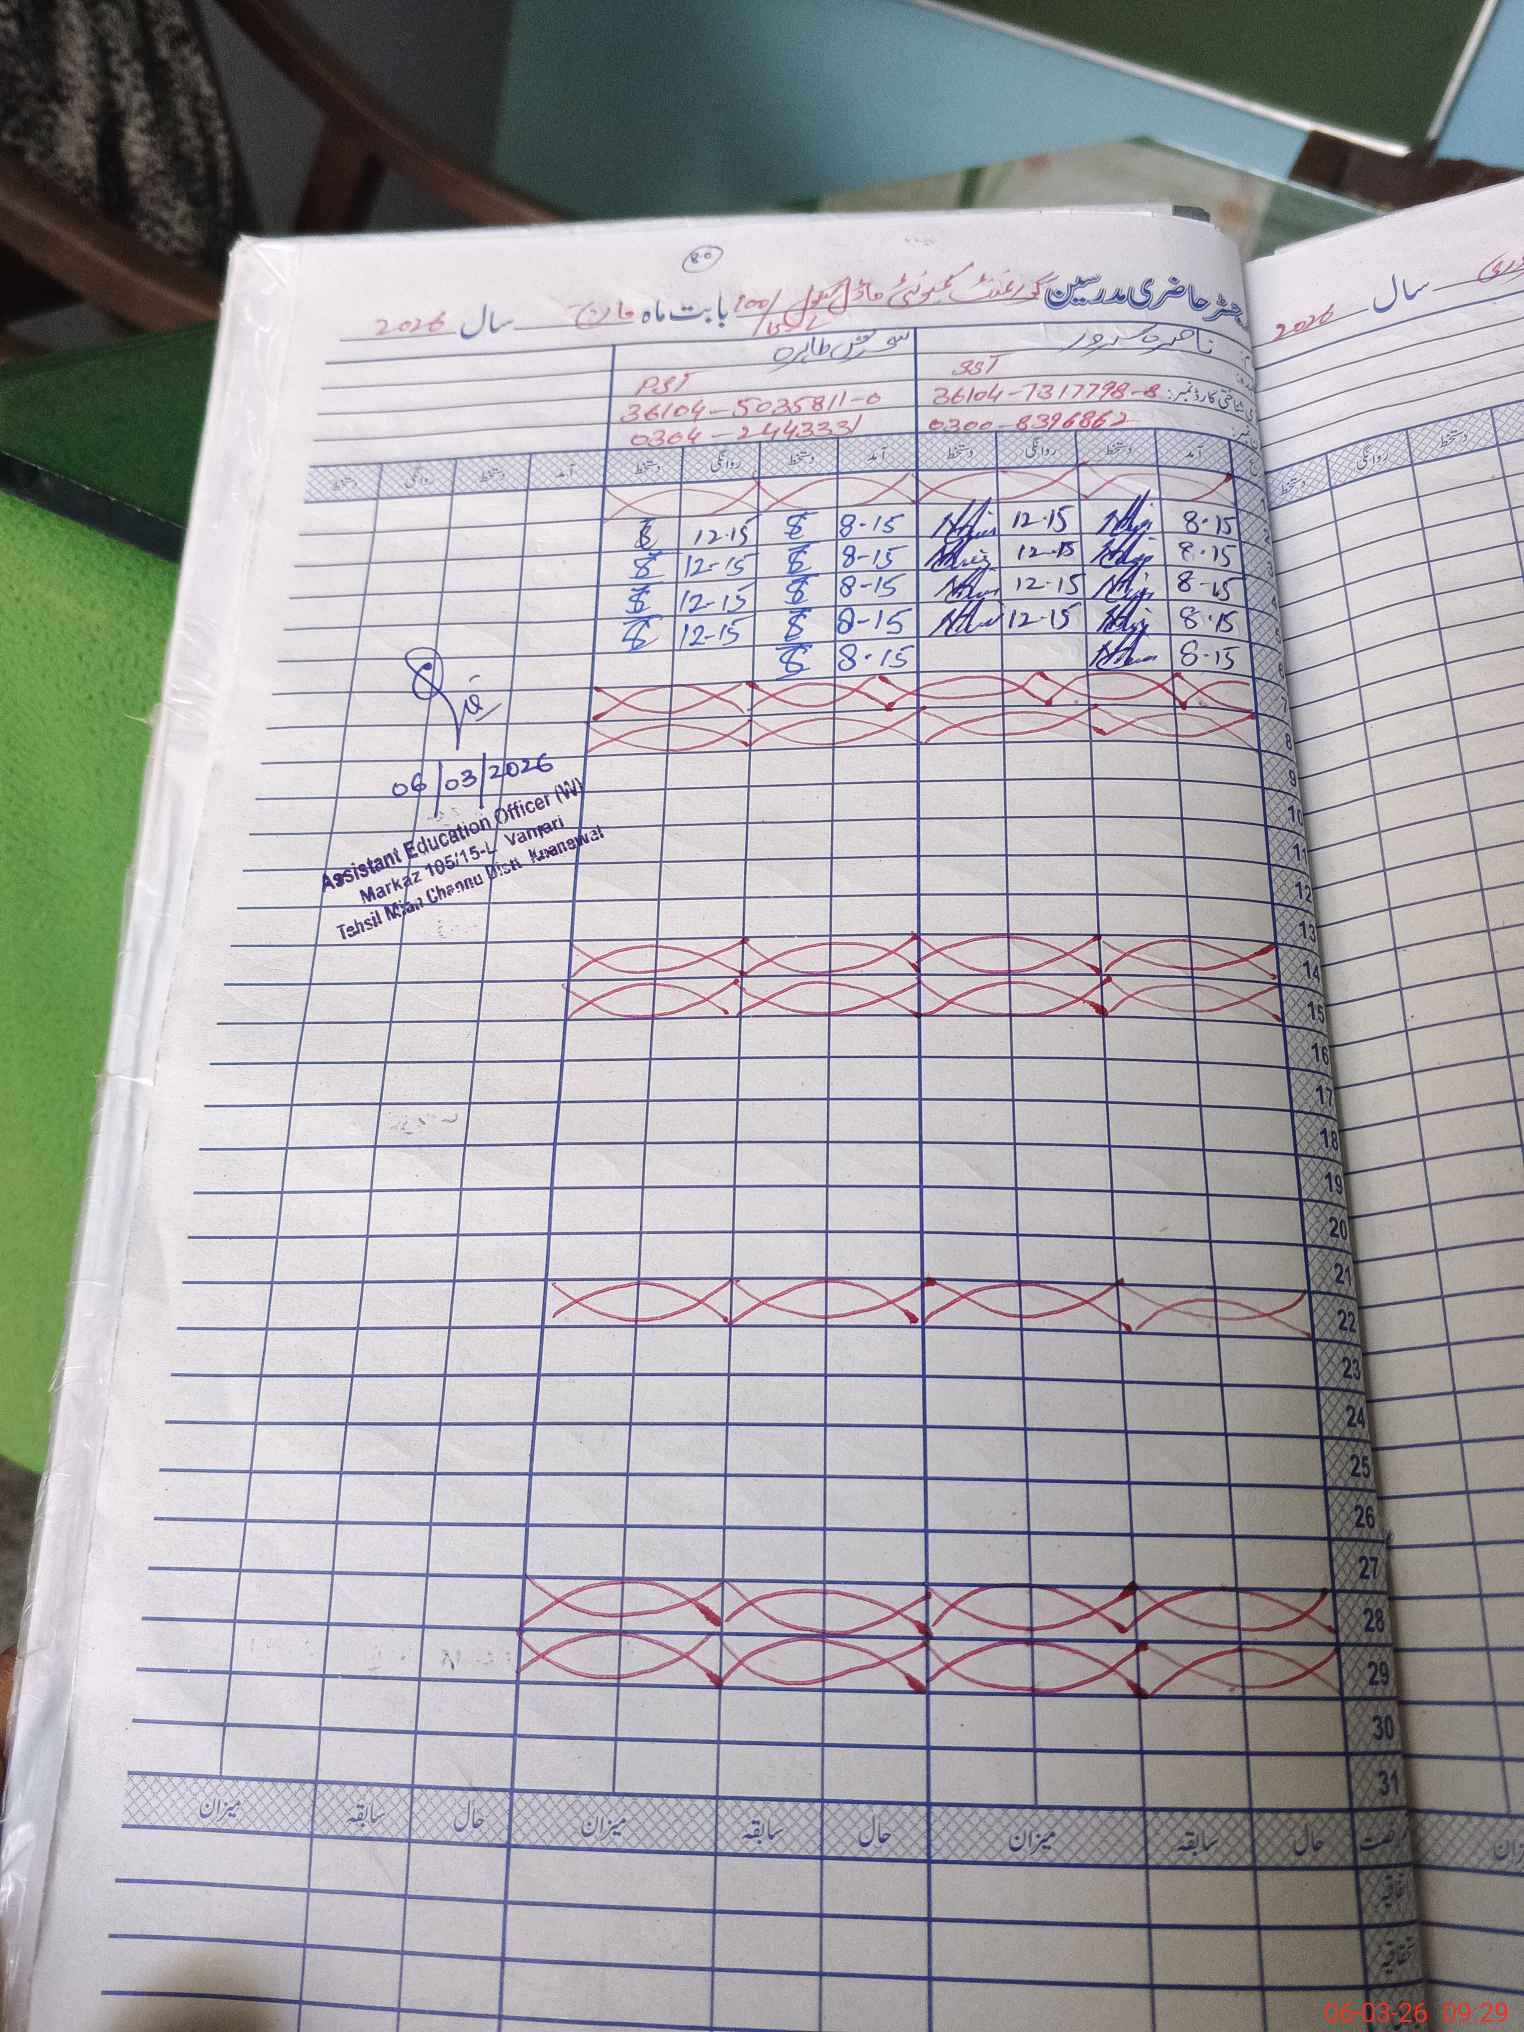 80
رجسٹر حاضری مدرسین گورنمنٹ کمیونٹی ماڈل سکول 100/15L بابت ماہ مارچ سال 2026
ناصرہ سرور
طاہرہ
SST
PST
شناختی کارڈ نمبر: 36104-7317798-8
36104-5035811-0
0300-8396862
0304-2443331
آمد دستخط روانگی دستخط آمد دستخط روانگی دستخط آمد دستخط روانگی دستخط
1
2 8-15 12-15 8-15 12-15
3 8-15 12-15 8-15 12-15
4 8-15 12-15 8-15 12-15
5 8-15 12-15 8-15 12-15
6 8-15 8-15
7
8
9
10
11
12
13
14
15
16
17
18
19
20
21
22
23
24
25
26
27
28
29
30
31
06/03/2026
Assistant Education Officer (W)
Markaz 105/15-L Vanjari
Tehsil Mian Channu Distt. Khanewal
رخصت حال سابقہ میزان حال سابقہ میزان حال سابقہ میزان
اتفاقیہ
استحقاقیہ
سال 2026
دستخط روانگی دستخط
06-03-26 09:29